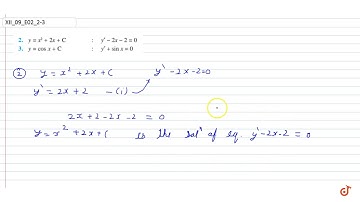 XII_09_E02_2-3
2. y = x² + 2x + C : y′ – 2x – 2 = 0
3. y = cos x + C : y′ + sin x = 0
② y = x² + 2x + C y' - 2x - 2 = 0
y' = 2x + 2 — (i)
2x + 2 - 2x - 2 = 0
y = x² + 2x + C is the solⁿ of eq. y' - 2x - 2 = 0
doubtnut